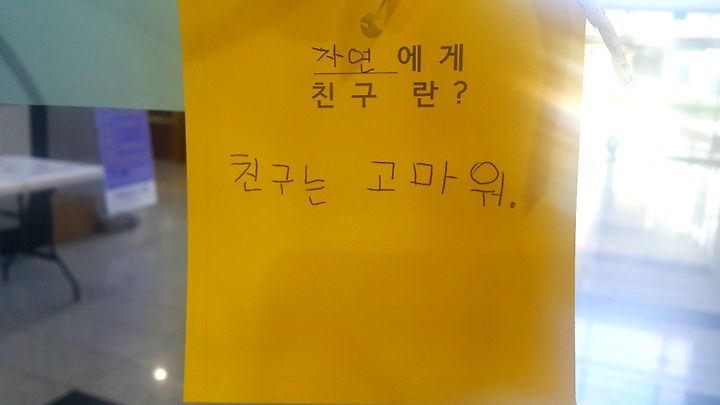 자연에게
친구란?
친구는 고마워.